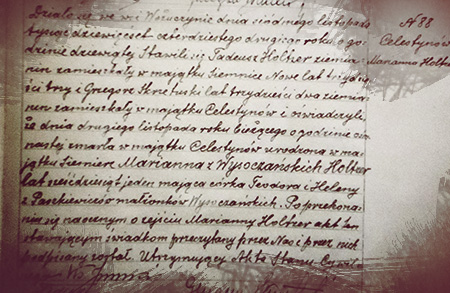 Działo się we wsi Wołuczynie dnia siódmego listopada
tysiąc dziewięćset czterdziestego drugiego roku o go-
dzinie dziewiątej Stawili się Tadeusz Holtzer ziemia-
nin zamieszkały w majątku Siemnice Nowe lat trzydzie-
ści trzy i Grzegorz Skretuski lat trzydzieści dwa ziemia-
nin zamieszkały w majątku Celestynów i oświadczyli
że dnia drugiego listopada roku bieżącego o godzinie
nastej zmarła w majątku Celestynów urodzona w ma-
jątku Siemierz Marianna z Wysoczańskich Holtzer
lat sześćdziesiąt jeden mająca córka Teodora i Heleny
z Pankiewiczów małżonków Wysoczańskich. Po przekona-
niu się naocznem o zejściu Marianny Holtzer akt ten
stawającym świadkom przeczytany przez Nas i przez nich
podpisany został. Utrzymujący Akta Stanu Cywil
N 88
Celestynów
Marianna Holtz